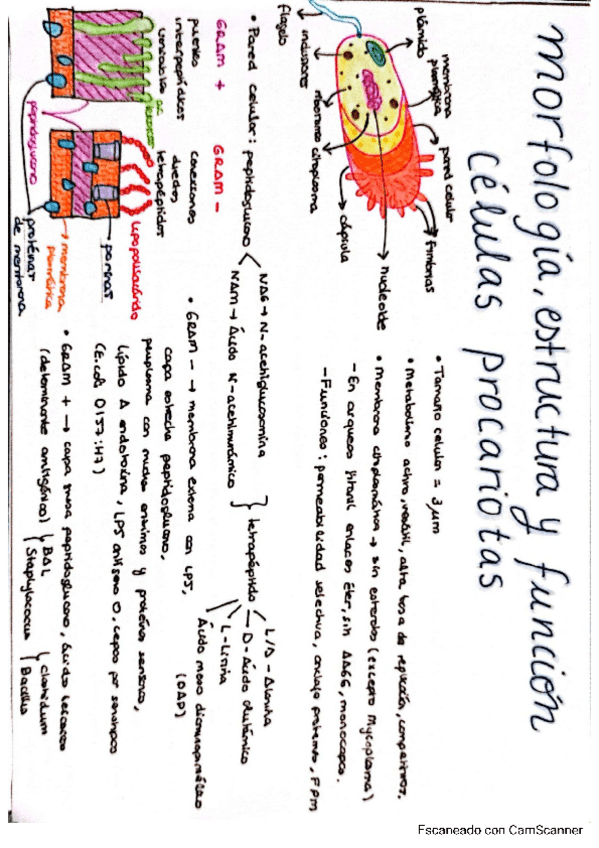 morfología, estructura y función
células procariotas
membrana plasmática
pared celular
fimbrias
plásmido
nucleoide
inclusiones
ribosoma
citoplasma
cápsula
flagelo
• Tamaño celular = 3 μm
• Metabolismo activo, versátil, alta tasa de replicación, competitivos.
• Membrana citoplasmática → sin esteroles (excepto Mycoplasma)
- En arqueas fitanil enlaces éter, sin AAGG, monocapa.
- Funciones: permeabilidad selectiva, anclaje proteínas, FPM
• Pared celular: peptidoglucano
NAG → N-acetilglucosamina
NAM → Ácido N-acetilmurámico
tetrapéptido
L/D-Alanina
D-Ácido glutámico
L-Lisina
Ácido meso diaminopimélico
(DAP)
GRAM +
GRAM -
puentes
interpeptídicos
conexiones
directas
tetrapéptidos
lipopolisacárido
porinas
membrana
plasmática
proteínas
de membrana
peptidoglucano
• GRAM - → membrana externa con LPS,
capa estrecha peptidoglucano,
periplasma con muchas enzimas y proteínas sensoras,
lípido A endotoxina, LPS antígeno O, cepas por serotipos
(E. coli O157:H7)
• GRAM + → capa gruesa peptidoglucano, ácidos teicoicos
(determinante antigénico)
BAL
Staphylococcus
Clostridium
Bacillus
Escaneado con CamScanner